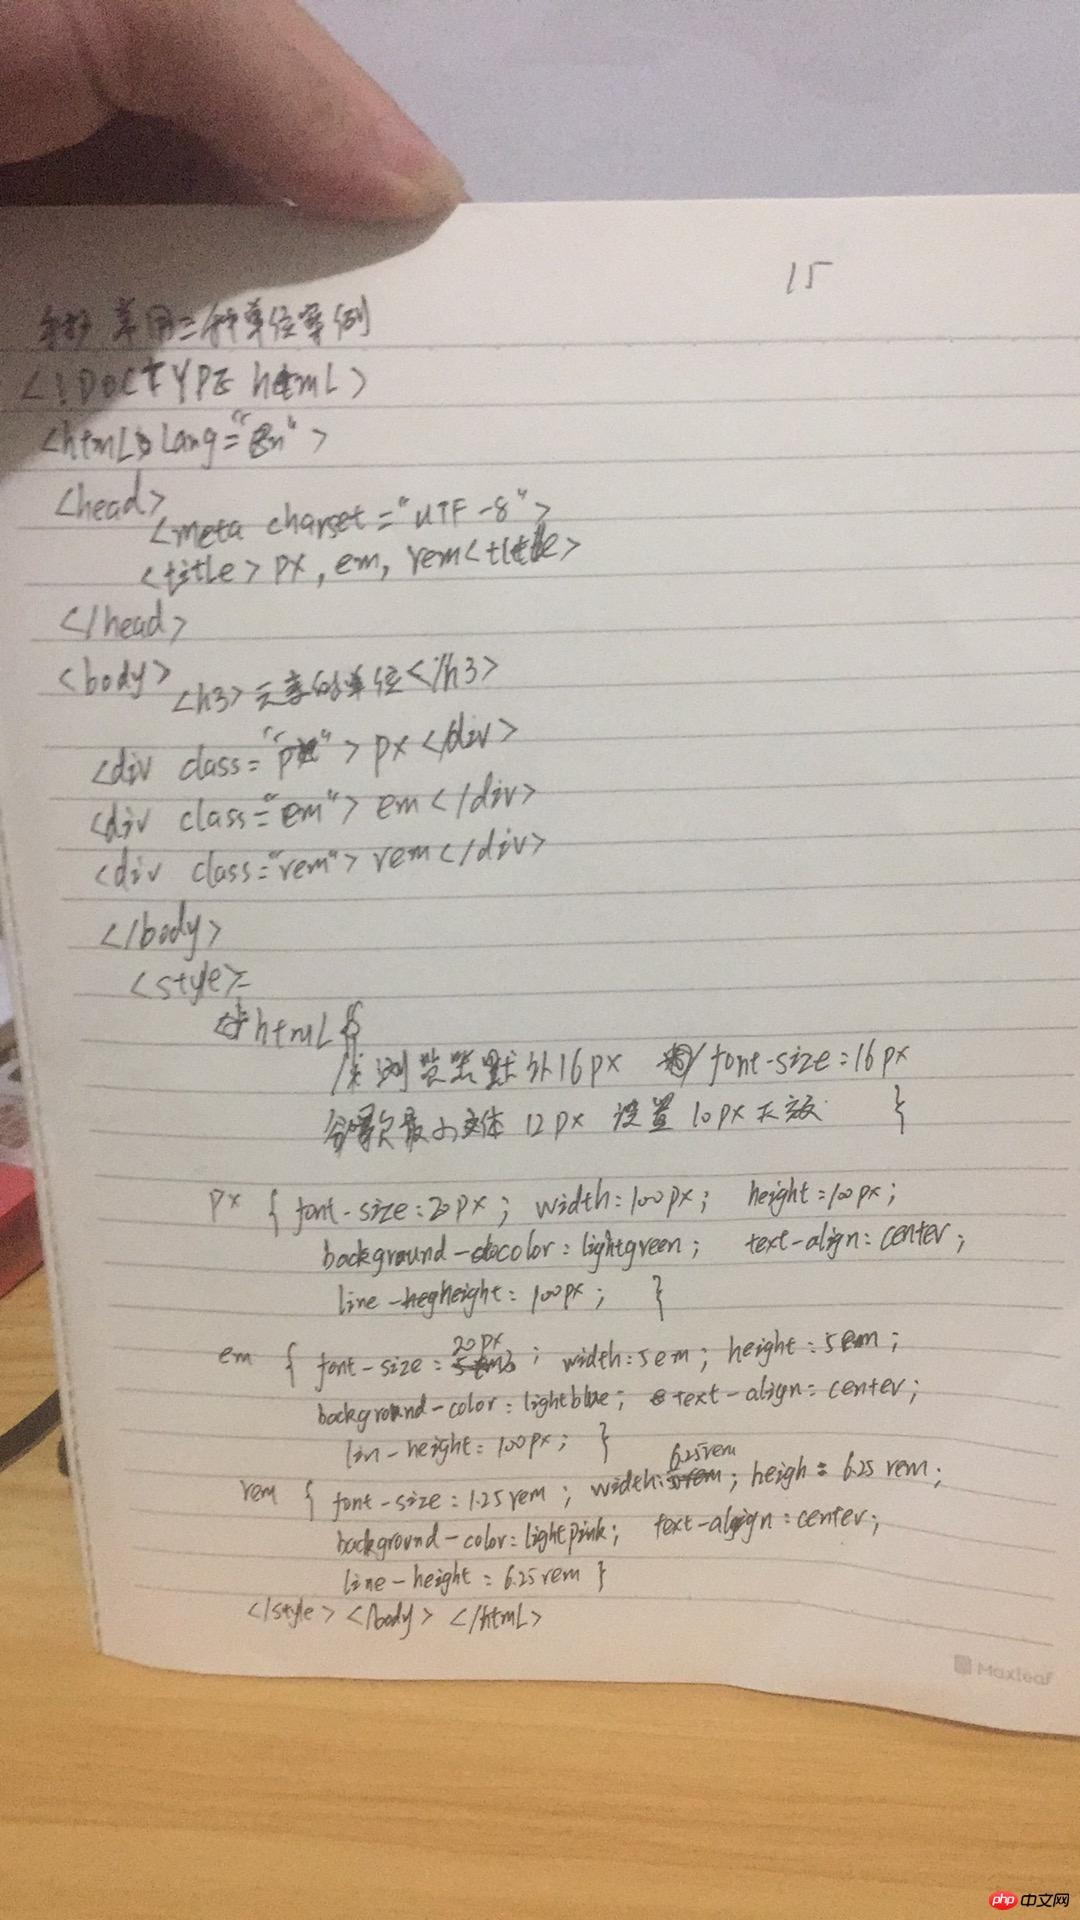 15
常用三种单位案例
<!DOCTYPE html>
<html lang="en">
<head>
<meta charset="UTF-8">
<title>px, em, rem<title>
</head>
<body>
<h3>元素的单位</h3>
<div class="px">px</div>
<div class="em">em</div>
<div class="rem">rem</div>
</body>
<style>
html {
/* 浏览器默认16px */ font-size:16px
谷歌最小字体 12px 设置 10px 无效 }
px { font-size:20px; width:100px; height:100px;
background-color:lightgreen; text-align:center;
line-height:100px; }
em { font-size:20px; width:5em; height:5em;
background-color:lightblue; text-align:center;
lin-height:100px; }
rem { font-size:1.25rem; width:6.25rem; heigh:6.25rem;
background-color:lightpink; text-align:center;
line-height:6.25rem }
</style></body></html>
Maxleaf
php中文网